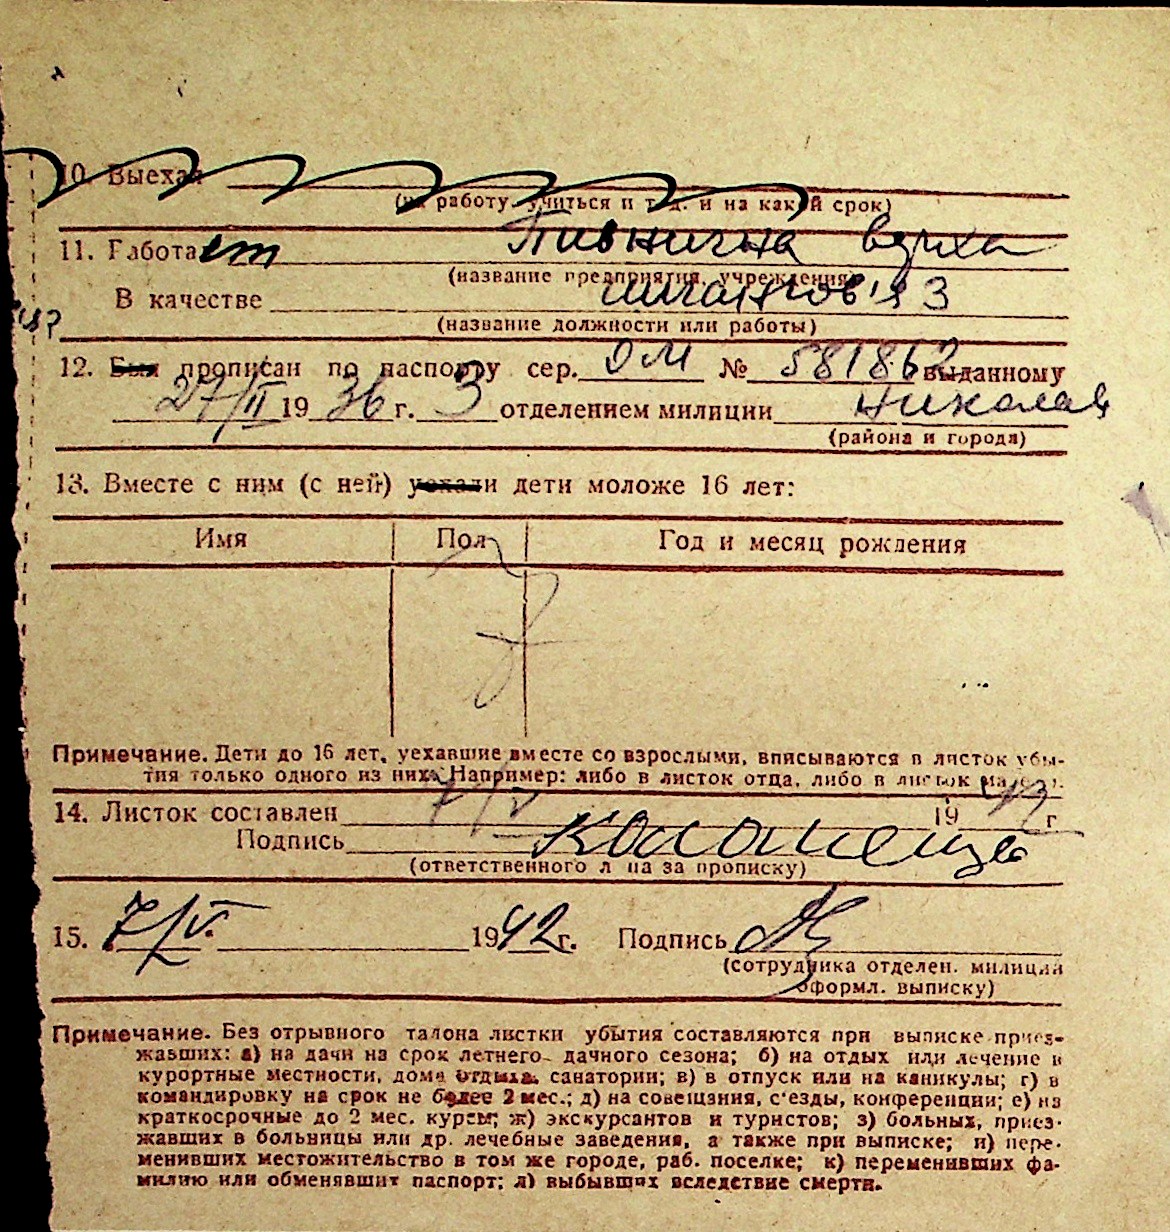 10. Выехал
(на работу, учиться и т. д. и на какой срок)
11. Работает Пивнична верхв
(название предприятия, учреждения)
В качестве з
(название должности или работы)
12. Был прописан по паспорту сер. ОМ № 581862 выданному
27/II 1936 г. 3 отделением милиции Николаев
(района и города)
13. Вместе с ним (с ней) уехали дети моложе 16 лет:
Имя Пол Год и месяц рождения
Примечание. Дети до 16 лет, уехавшие вместе со взрослыми, вписываются в листок убы-
тия только одного из них. Например: либо в листок отца, либо в листок матери.
14. Листок составлен 7/V 1943 г
Подпись
(ответственного лица за прописку)
15. 7/V. 1942 г. Подпись
(сотрудника отделен. милиции
оформл. выписку)
Примечание. Без отрывного талона листки убытия составляются при выписке приез-
жавших: а) на дачи на срок летнего- дачного сезона; б) на отдых или лечение в
курортные местности, дома отдыха, санатории; в) в отпуск или на каникулы; г) в
командировку на срок не более 2 мес.; д) на совещания, с'езды, конференции; е) на
краткосрочные до 2 мес. курсы; ж) экскурсантов и туристов; з) больных, приез-
жавших в больницы или др. лечебные заведения, а также при выписке; и) пере-
менивших местожительство в том же городе, раб. поселке; к) переменивших фа-
милию или обменявших паспорт; л) выбывших вследствие смерти.